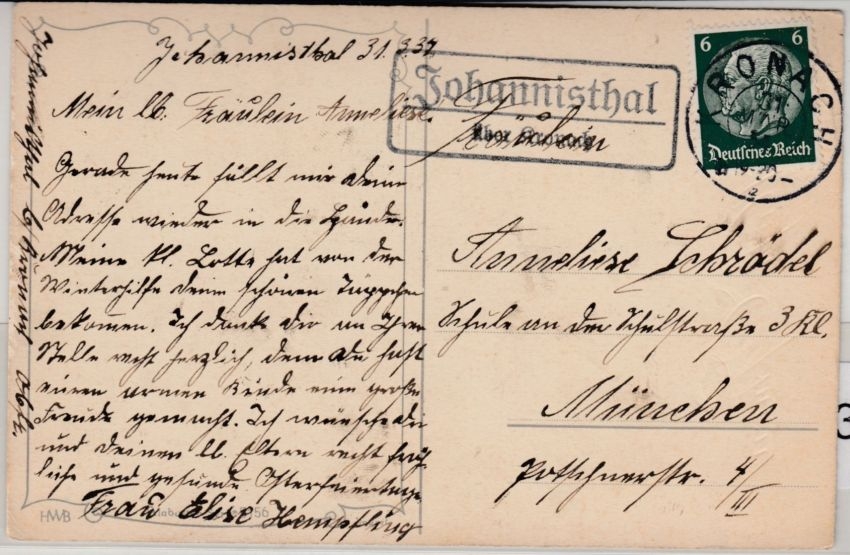 Johannisthal 31.3.37
Mein lb. Fräulein Anneliese.
Gerade heute fällt mir deine
Adresse wieder in die Hände.
Meine kl. Lotte hat von der
Winterhilfe deine schönen Täppchen
bekommen. Ich danke dir an Ihrer
Stelle recht herzlich, denn du hast
einem armen Kinde eine große
Freude gemacht. Ich wünsche dir
und deinen lb. Eltern recht fröh-
liche und gesunde Osterfeiertage
Frau Elise Hempfling
Johannisthal b/Kronach Ofr.
HWB
56
Johannisthal
über Kronach
Fräulein
Anneliese Schrödel
Schule an der Schulstraße 3 Kl.
München
Potschnerstr. 4/III
6 6
Deutsches Reich
KRONACH